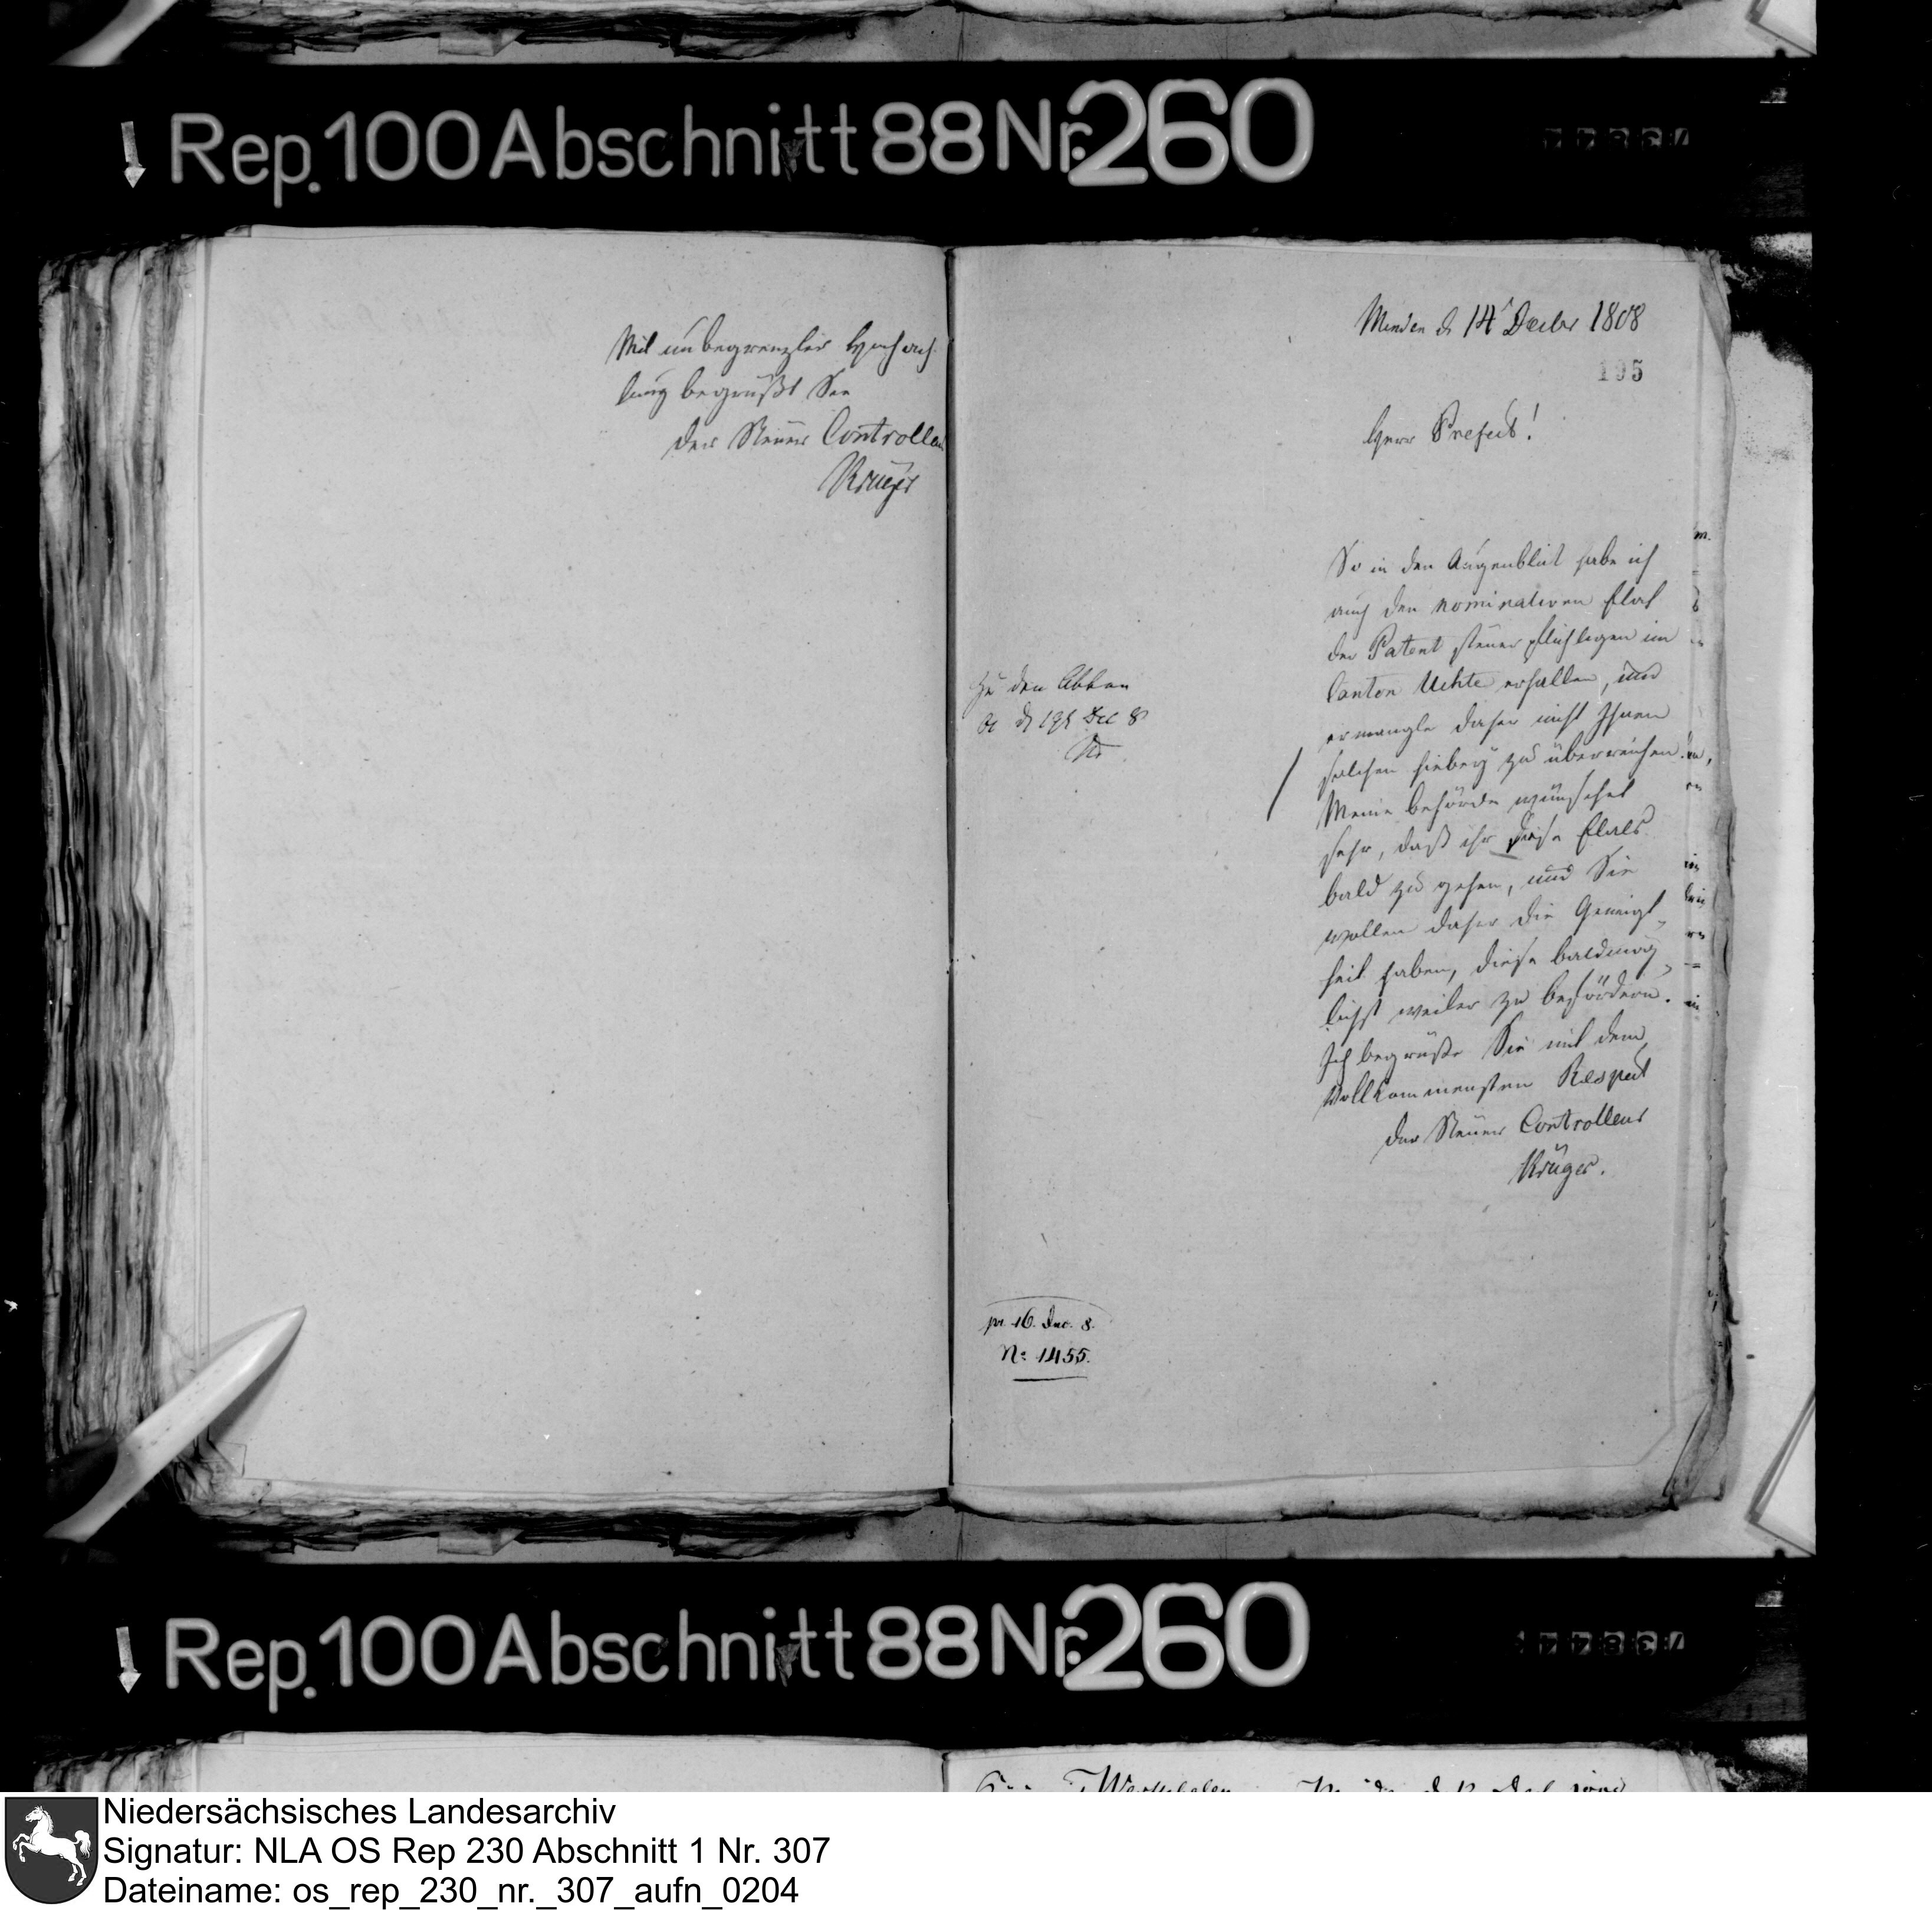 Rep. 100 Abschnitt 88 Nr. 260
Mit unbegrenzter Hochach
tung begrüßt Sie
der Steuer Controlleur
Krüger
Minden d 14t Decbr 1808
195
Herr Prefect!
So in den Augenblick habe ich
auch den nominativen Etat
der Patent steuer pflichtigen im
Canton Uchte erhalten, und
ermangle daher nicht Ihnen
solchen hiebey zu überreichen.
Meine Behörde wünschet
sehr, daß ihr diese Etats
bald zu gehen, und Sie
wollen daher die Geneigt-
heit haben, diese baldmög-
lichst weiter zu befördern.
Ich begrüße Sie mit dem
Vollkommensten Respect
der Steuer Controlleur
Krüger.
Zu den Akten
O d 19t Dec 8
pr. 16. Dec. 8.
No 1455.
Rep. 100 Abschnitt 88 Nr. 260
Niedersächsisches Landesarchiv
Signatur: NLA OS Rep 230 Abschnitt 1 Nr. 307
Dateiname: os_rep_230_nr._307_aufn_0204